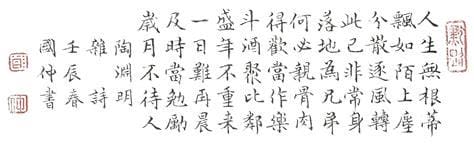 人生無根蒂
飄如陌上塵
分散逐風轉
此已非常身
落地為兄弟
何必親骨肉
得歡當作樂
斗酒聚比鄰
盛年不重来
一日難再晨
及時當勉勵
歲月不待人
陶淵明
雜詩
壬辰春
國仲書